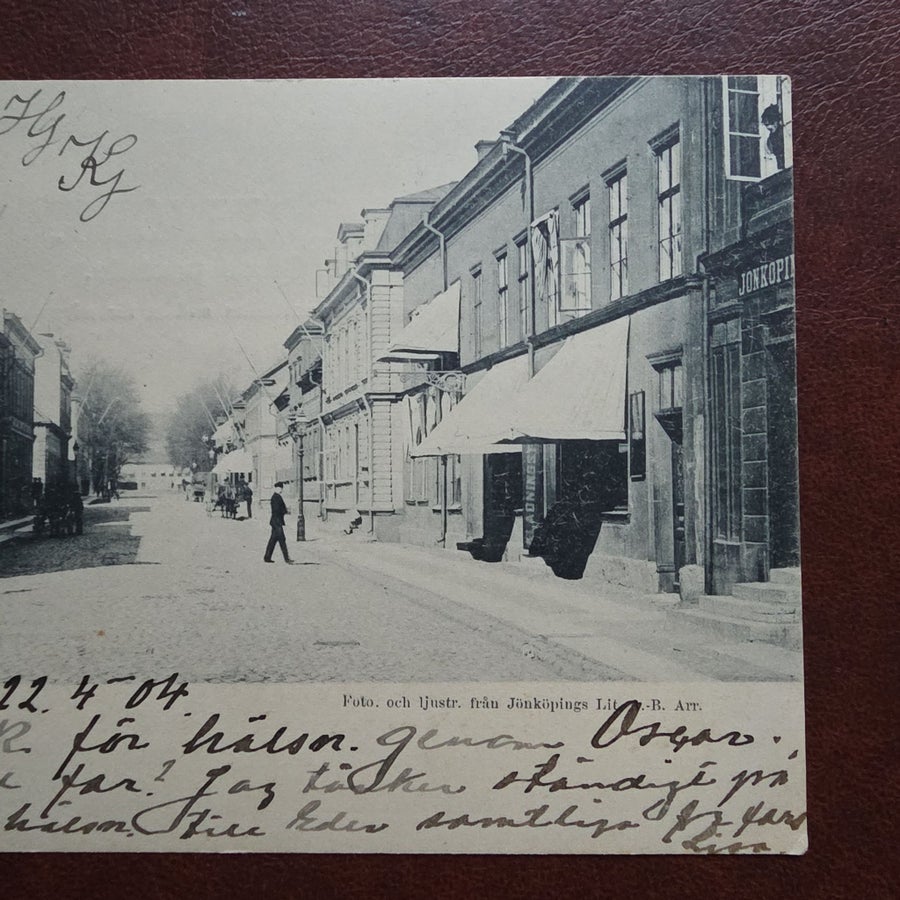 Hg
Kg
JONKOPI
22. 4 - 04.
Foto. och ljustr. från Jönköpings Lit A.-B. Arr.
för hälsn. genom Oscar.
far? Jag tänker ständigt på
hälsn. till Eder samtliga